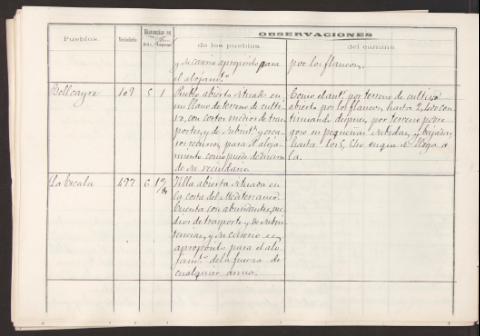 OBSERVACIONES
Pueblos.
Vecindario
Distancias en
de los pueblos.
del camino.
y su caserio apropósito para
el alojamto.
por los flancos.
Bellcayre
107
5.
1
Pueblo abierto situado en
un llano de terreno de culti-
vo, con cortos medios de tras-
porte, y de subsist.ª y esca-
sos recursos para el aloja-
miento como puede deducirse
de su vecindario.
Como el antr. por terreno de cultivo
abierto por los flancos, hasta 2,400 con-
tinuando despues por terreno pedre-
goso en pequeñas subidas y bajadas
hasta los 5, en que se llega a
la.
La Escala
477
6.
Villa abierta situada en
la costa del Mediterraneo.
Cuenta con abundantes me-
dios de trasporte y de subsis-
tencias, y su caserio es
apropósito para el alo-
jamto. de la fuerza de
cualquier arma.